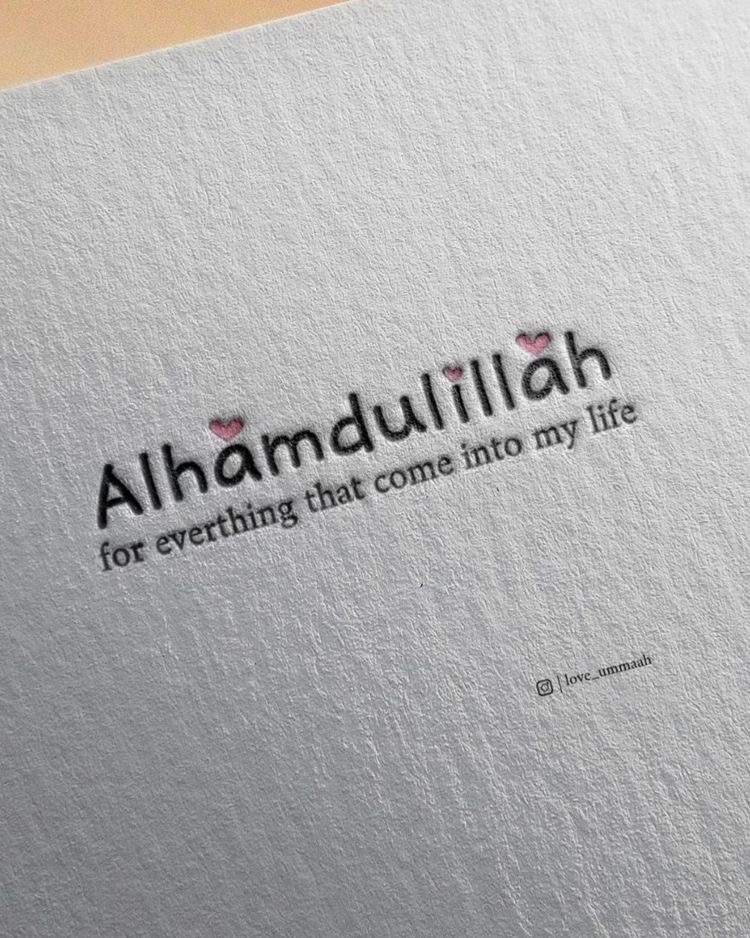 Alhamdulillah
for everthing that come into my life
| love_ummaah